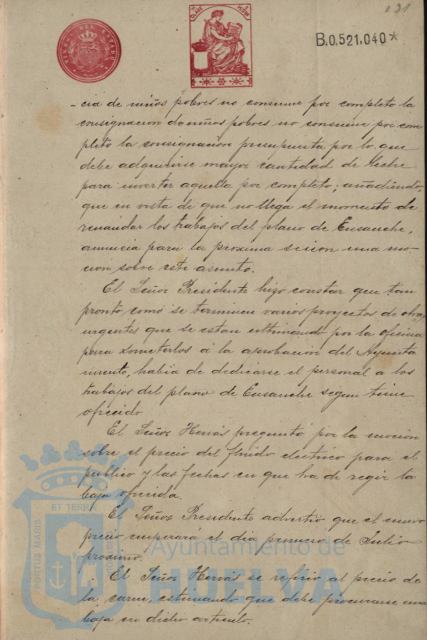 121
B.0.521.040*
-cia de niños pobres no consume por completo la
consignacion de niños pobres no consume por com
pleto la consignacion presupuesta por lo que
debe adquirirse mayor cantidad de leche
para invertir aquella por completo, añadiendo,
que en vista de que no llega el momento de
reanudar los trabajos del plano de Ensanche,
anuncia para la proxima sesion una mo-
cion sobre este asunto.
El Señor Presidente hizo constar que tan
pronto como se terminen varios proyectos de obras
urgentes que se estan ultimando por la oficina
para someterlos á la aprobacion del Ayunta
miento, habia de dedicarse el personal a los
trabajos del plano de Ensanche segun tiene
ofrecido
El Señor Hernás preguntó por la mocion
sobre el precio del fluido electrico para el
publico y las fechas en que ha de regir la
baja ofrecida.
El Señor Presidente advertió que el nuevo
precio empezara el dia primero de Julio
proximo.
El Señor Hernás se refirió al precio de
la carne, estimando que debe procurarse una
baja en dicho articulo.
PORTUS MARIS ET TERRÆ
Ayuntamiento de
HUELVA